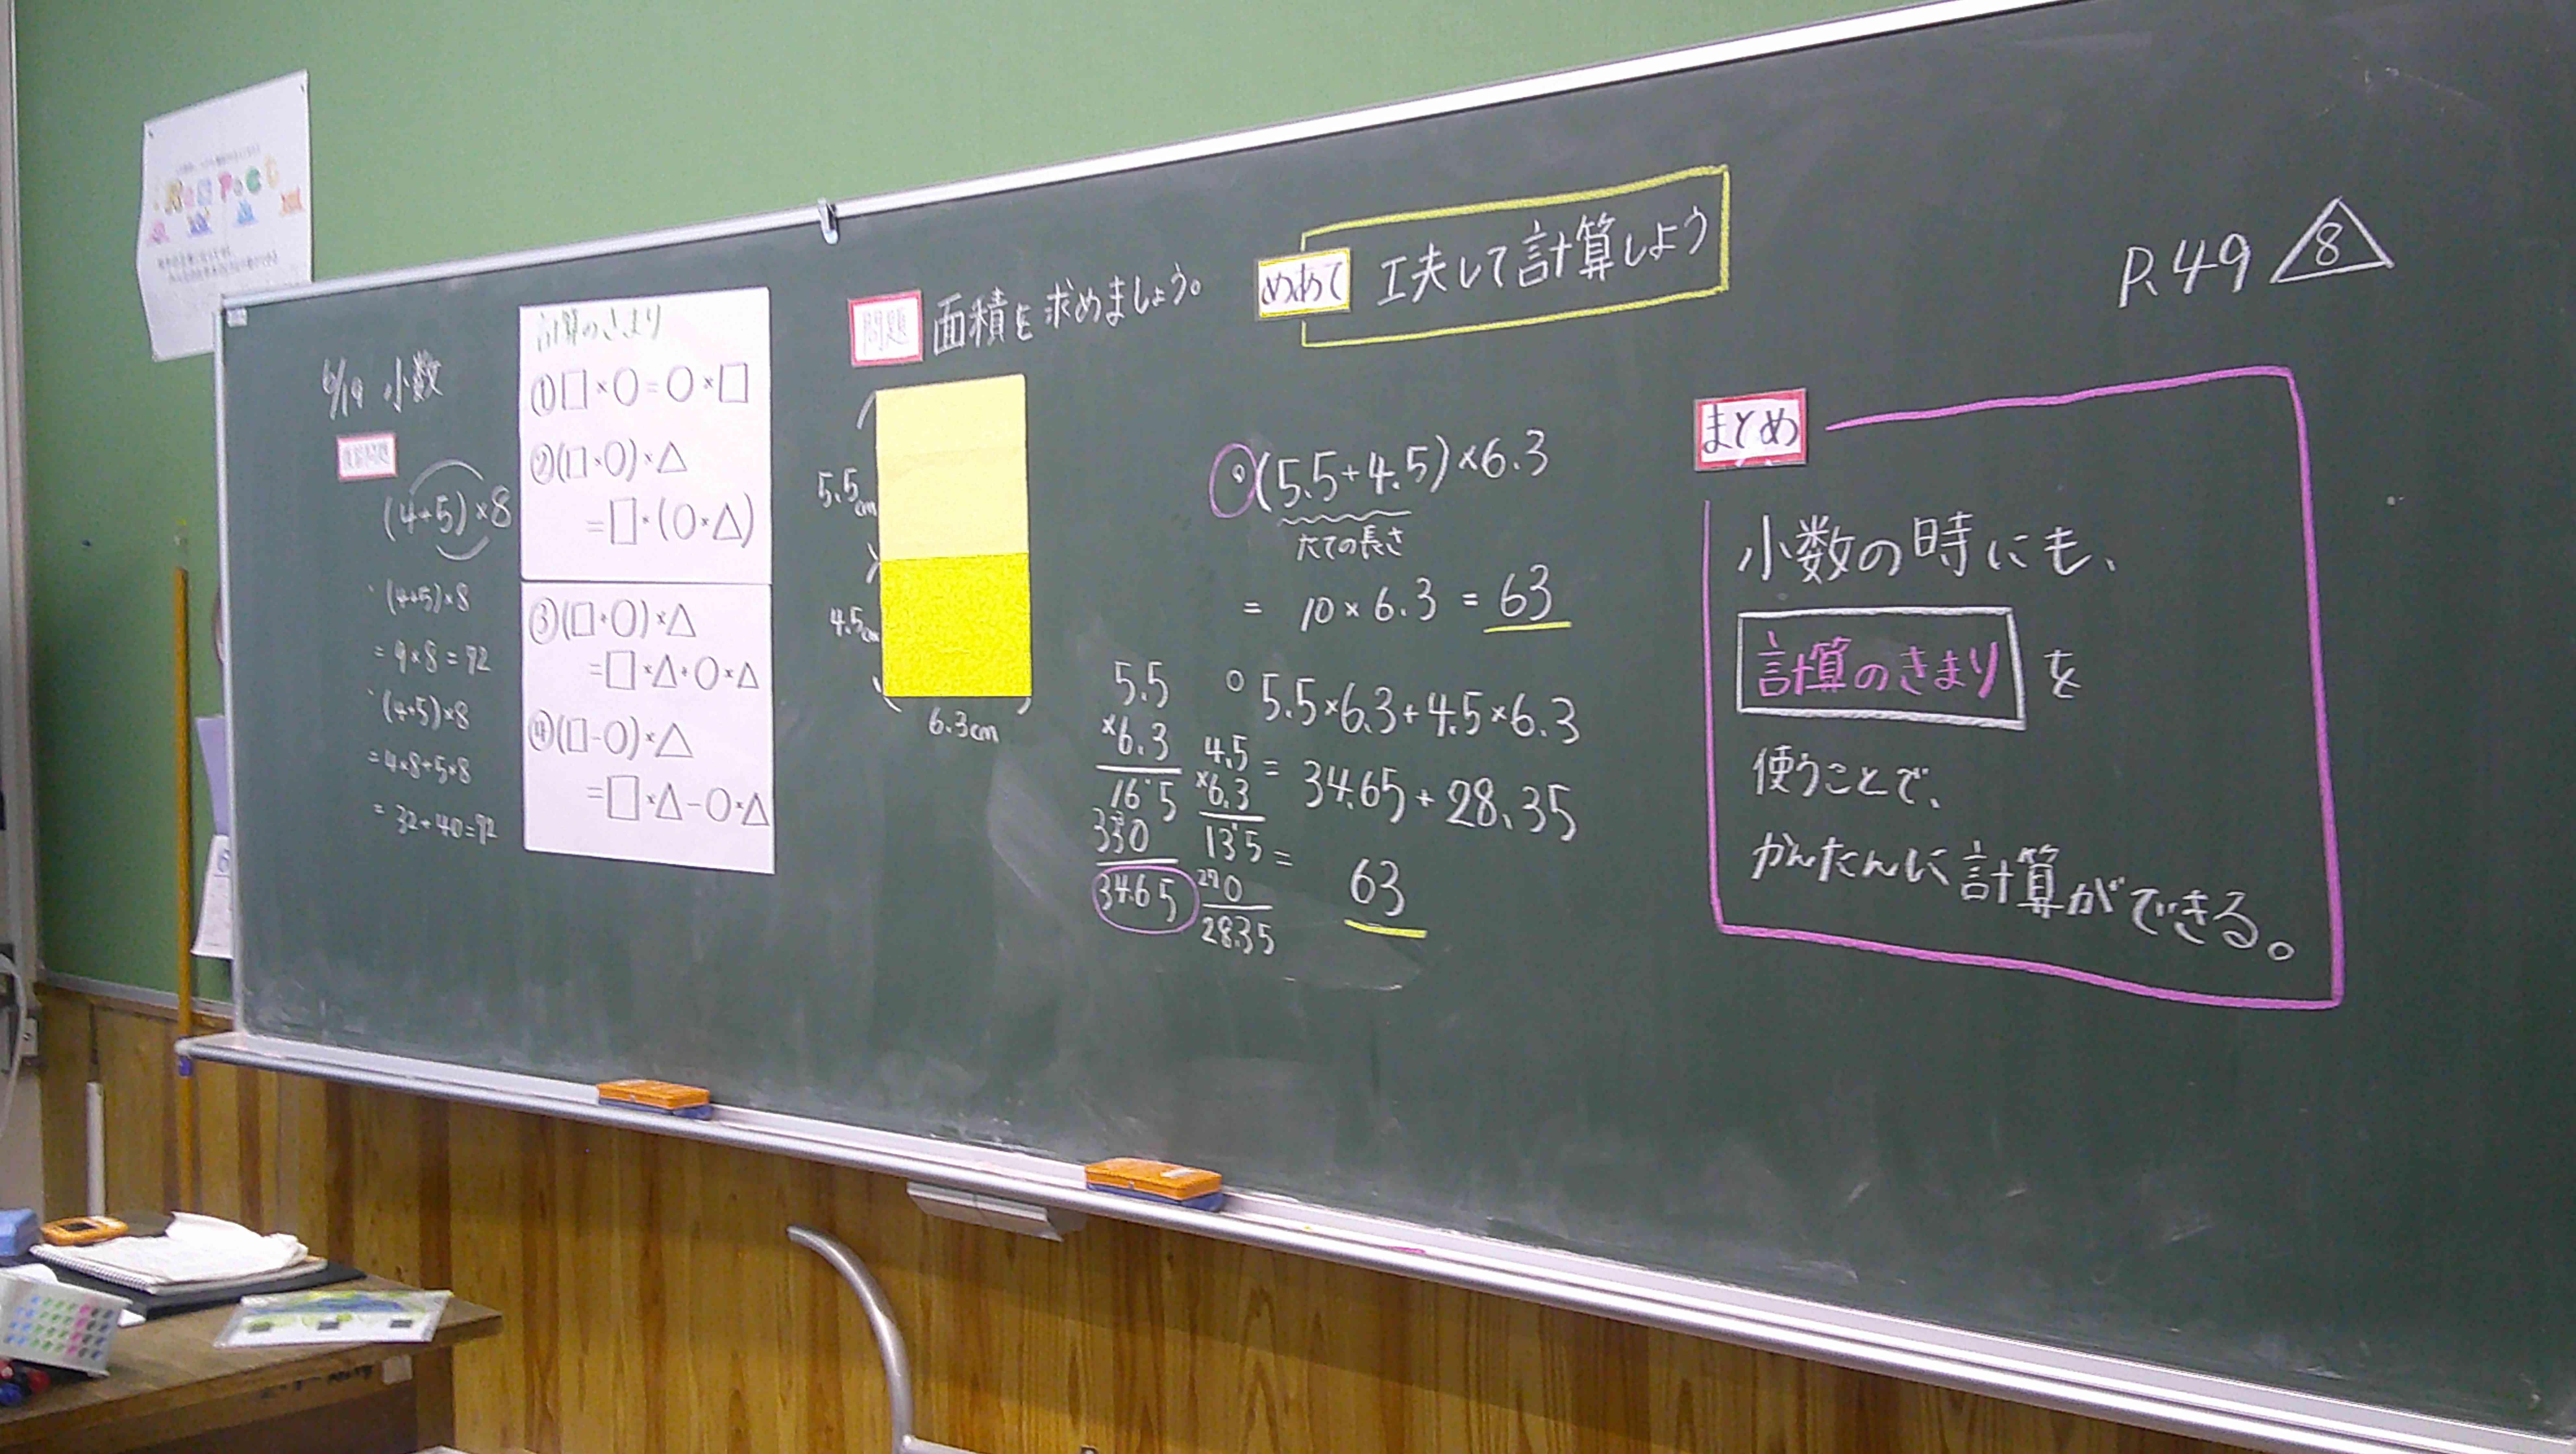 ResPect
6/19 小数
(4+5)×8
(4+5)×8
=9×8=72
(4+5)×8
=4×8+5×8
=32+40=72
計算のきまり
①□×○=○×□
②(□×○)×△
=□×(○×△)
③(□+○)×△
=□×△+○×△
④(□-○)×△
=□×△-○×△
問題 面積を求めましょう。
5.5cm
4.5cm
6.3cm
めあて 工夫して計算しよう
(5.5+4.5)×6.3
たての長さ
= 10×6.3 = 63
5.5×6.3+4.5×6.3
= 34.65+28.35
= 63
5.5
×6.3
165
330
34.65
4.5
×6.3
135
270
28.35
P.49 8
まとめ
小数の時にも、
計算のきまり を
使うことで、
かんたんに計算ができる。